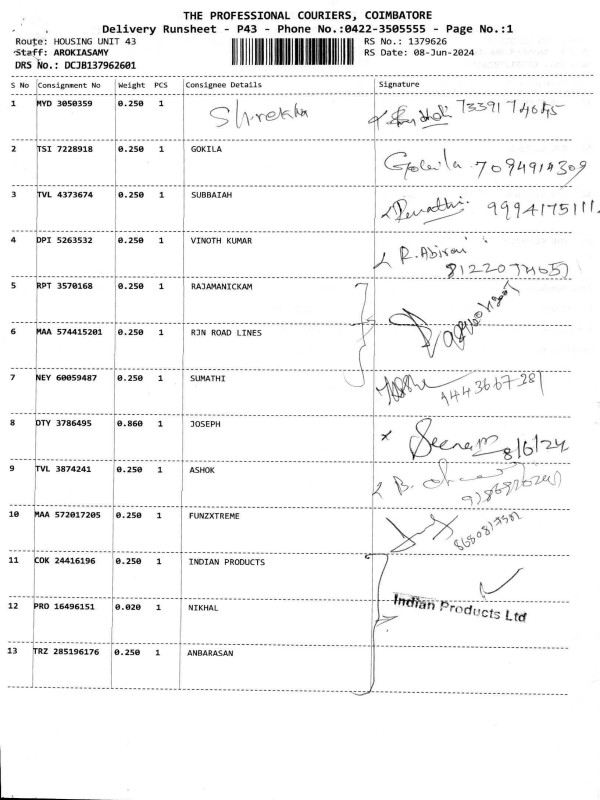 THE PROFESSIONAL COURIERS, COIMBATORE
Delivery Runsheet - P43 - Phone No.:0422-3505555 - Page No.:1
Route: HOUSING UNIT 43 RS No.: 1379626
Staff: AROKIASAMY RS Date: 08-Jun-2024
DRS No.: DCJB137962601
S No Consignment No Weight PCS Consignee Details Signature
1 MYD 3050359 0.250 1
2 TSI 7228918 0.250 1 GOKILA Gokila 7094914309
3 TVL 4373674 0.250 1 SUBBAIAH Revathi. 9994175111
4 DPI 5263532 0.250 1 VINOTH KUMAR R. Abirai
8122074057
5 RPT 3570168 0.250 1 RAJAMANICKAM
6 MAA 574415201 0.250 1 RJN ROAD LINES
7 NEY 60059487 0.250 1 SUMATHI 9443667281
8 OTY 3786495 0.860 1 JOSEPH 8/6/24
9 TVL 3874241 0.250 1 ASHOK B.
10 MAA 572017205 0.250 1 FUNZXTREME
11 COK 24416196 0.250 1 INDIAN PRODUCTS
12 PRO 16496151 0.020 1 NIKHAL Indian Products Ltd
13 TRZ 285196176 0.250 1 ANBARASAN